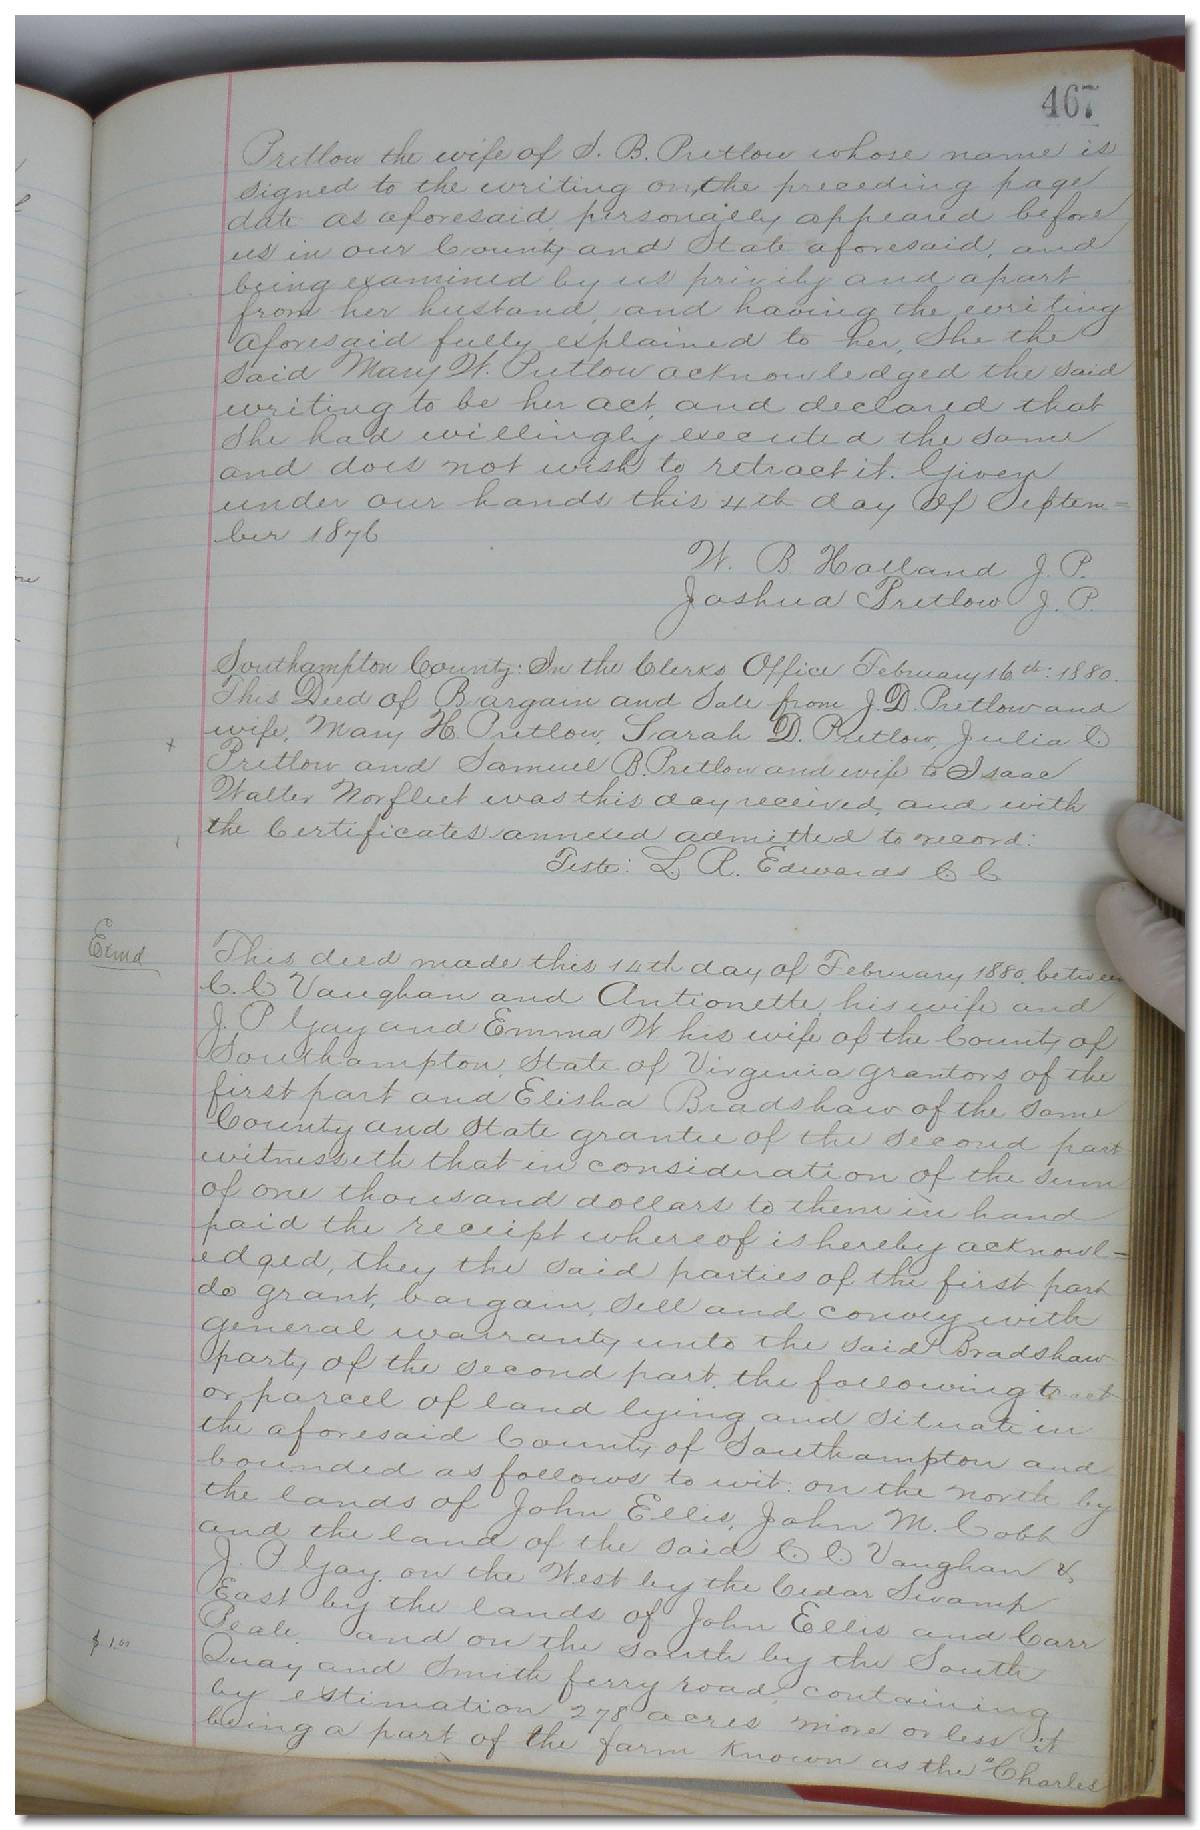 467
Pretlow the wife of S. B. Pretlow whose name is
signed to the writing on the preceding page
date as aforesaid, personally appeared before
us in our County and State aforesaid, and
being examined by us privily and apart
from her husband, and having the writing
aforesaid fully explained to her, She the
said Mary W. Pretlow acknowledged the said
writing to be her act, and declared that
She had willingly executed the same
and does not wish to retract it. Given
under our hands this 4th day of Septem=
ber 1876
W. B. Holland J. P.
Joshua Pretlow J. P.
Southampton County: In the Clerks Office February 16th: 1880.
This Deed of Bargain and Sale from J. D. Pretlow and
wife, Mary H. Pretlow, Sarah D. Pretlow, Julia C.
Pretlow and Samuel B. Pretlow and wife to Isaac
Walter Norfleet was this day received, and with
the Certificates annexed admitted to record:
Teste: L. R. Edwards C. C
Exmd
This deed made this 14th day of February 1880, between
C. C Vaughan and Antionette, his wife and
J. P Gay and Emma W his wife of the County of
Southampton, State of Virginia grantors of the
first part and Elisha Bradshaw of the same
County and State grantee of the second part
witnesseth that in consideration of the sum
of one thousand dollars to them in hand
paid the receipt whereof is hereby acknowl=
edged, they the said parties of the first part
do grant, bargain, sell and convey with
general warranty unto the said Bradshaw
party of the second part, the following tract
or parcel of land lying and situate in
the aforesaid County of Southampton and
bounded as follows to wit: on the north by
the lands of John Ellis, John M. Cobb
and the land of the said C. C Vaughan &
J. P Gay, on the West by the Cedar Swamp
East by the lands of John Ellis and Carr
Beale, and on the South by the South
$1.00
Quay and Smith ferry road, containing
by estimation 278 acres more or less it
being a part of the farm known as the "Charles